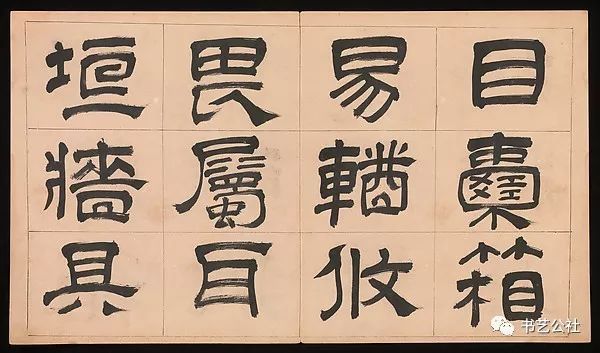 目囊箱
易輶攸
畏屬耳
垣牆具
书艺公社